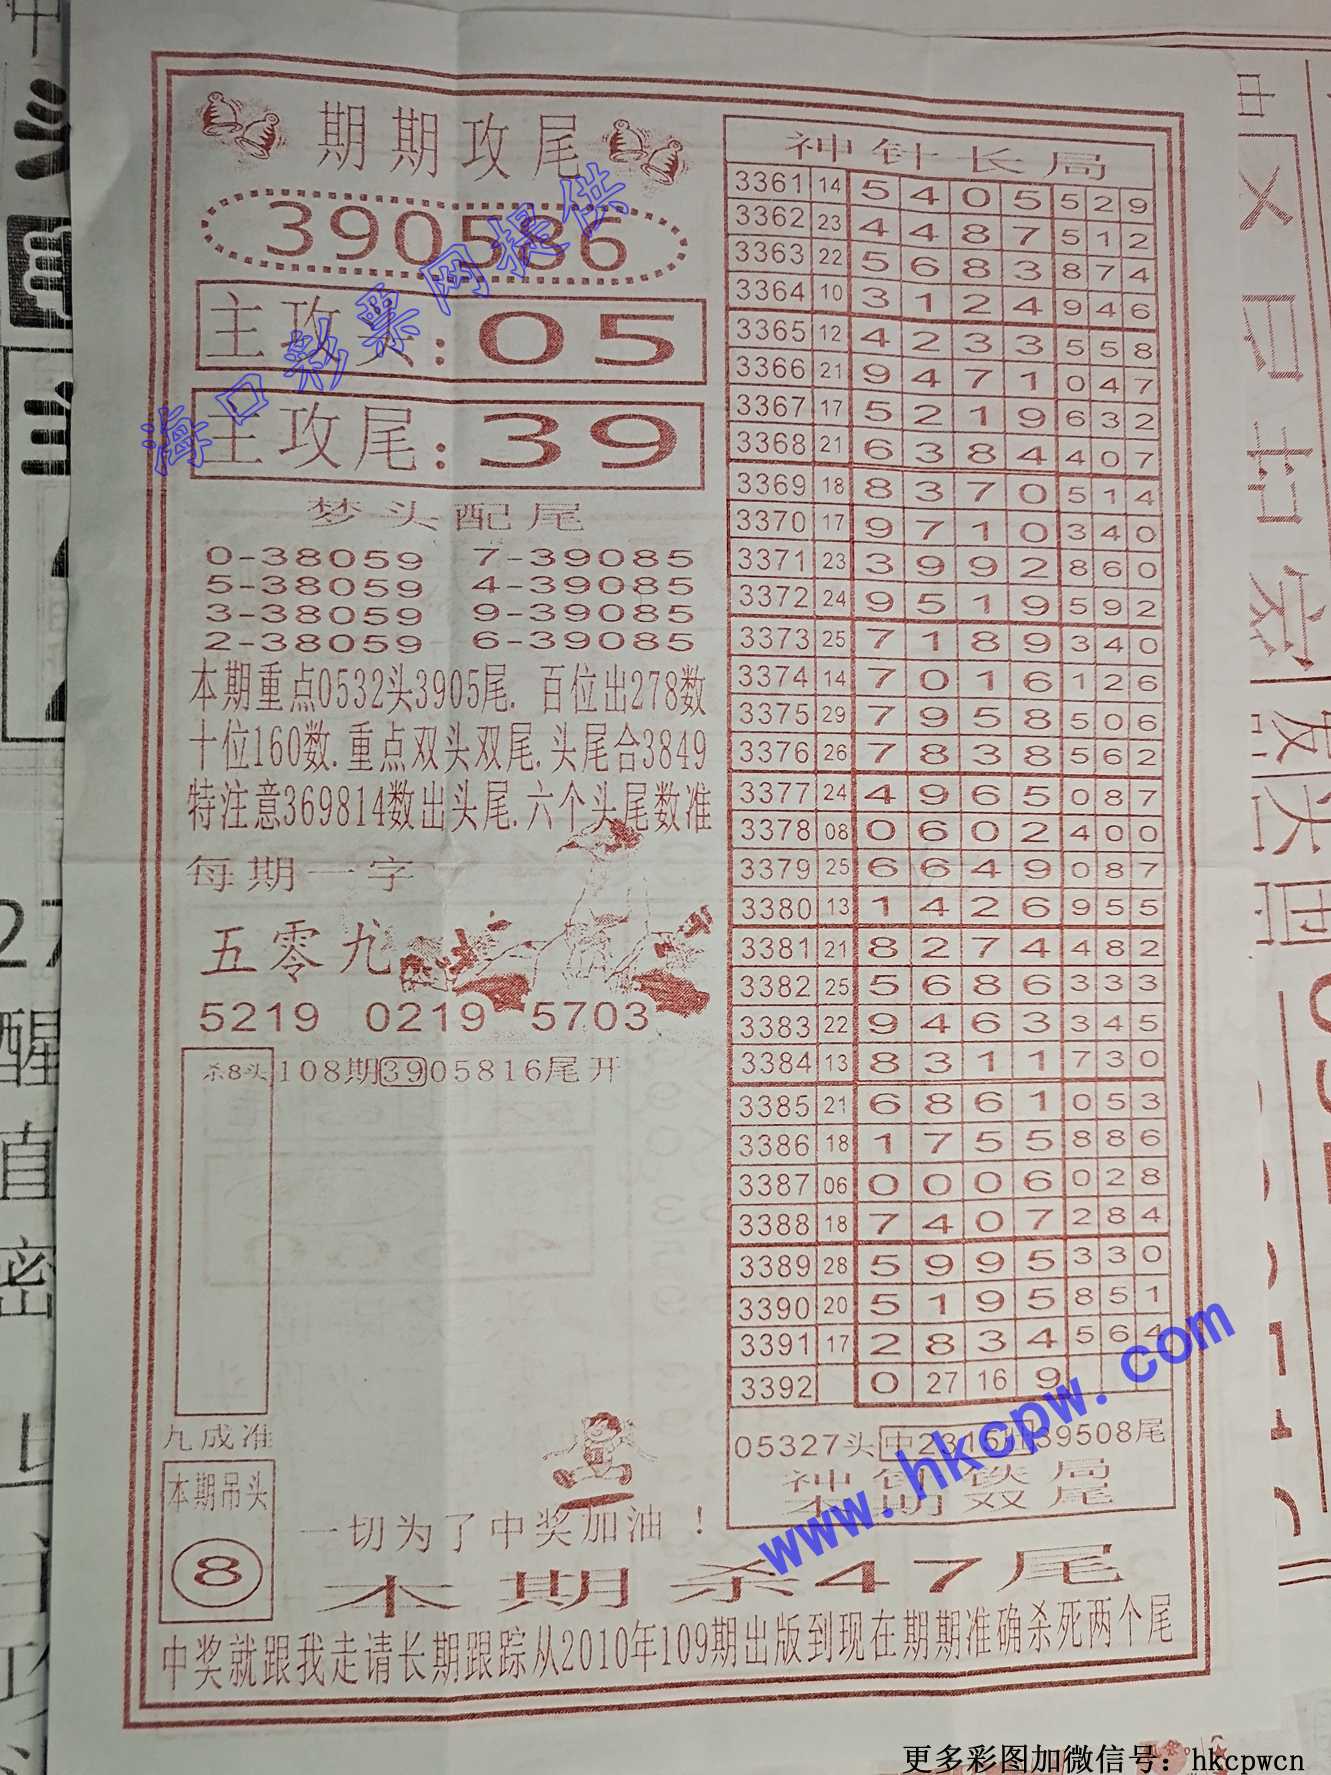 期期攻尾
390586
主攻头:05
主攻尾:39
梦头配尾
0-38059 7-39085
5-38059 4-39085
3-38059 9-39085
2-38059 6-39085
本期重点0532头3905尾. 百位出278数
十位160数.重点双头双尾.头尾合3849
特注意369814数出头尾.六个头尾数准
每期一字
五零九
5219 0219 5703
杀8头 108期3905816尾开
九成准
本期吊头
8
一切为了中奖加油！
神针长局
3361 14 5 4 0 5 5 2 9
3362 23 4 4 8 7 5 1 2
3363 22 5 6 8 3 8 7 4
3364 10 3 1 2 4 9 4 6
3365 12 4 2 3 3 5 5 8
3366 21 9 4 7 1 0 4 7
3367 17 5 2 1 9 6 3 2
3368 21 6 3 8 4 4 0 7
3369 18 8 3 7 0 5 1 4
3370 17 9 7 1 0 3 4 0
3371 23 3 9 9 2 8 6 0
3372 24 9 5 1 9 5 9 2
3373 25 7 1 8 9 3 4 0
3374 14 7 0 1 6 1 2 6
3375 29 7 9 5 8 5 0 6
3376 26 7 8 3 8 5 6 2
3377 24 4 9 6 5 0 8 7
3378 08 0 6 0 2 4 0 0
3379 25 6 6 4 9 0 8 7
3380 13 1 4 2 6 9 5 5
3381 21 8 2 7 4 4 8 2
3382 25 5 6 8 6 3 3 3
3383 22 9 4 6 3 3 4 5
3384 13 8 3 1 1 7 3 0
3385 21 6 8 6 1 0 5 3
3386 18 1 7 5 5 8 8 6
3387 06 0 0 0 6 0 2 8
3388 18 7 4 0 7 2 8 4
3389 28 5 9 9 5 3 3 0
3390 20 5 1 9 5 8 5 1
3391 17 2 8 3 4 5 6 4
3392 0 27 16 9
05327头 中2316 39508尾
神针铁局
本期双尾
本期杀47尾
中奖就跟我走请长期跟踪从2010年109期出版到现在期期准确杀死两个尾
海口彩票网提供
www.hkcpw.com
更多彩图加微信号：hkcpwcn